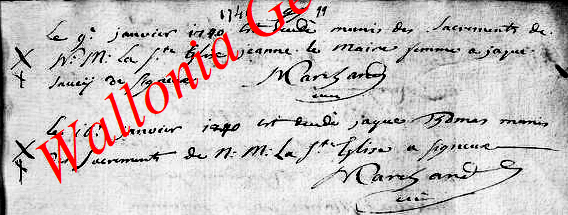 1740
Le 9e janvier 1740 est decede munis des Sacrements de
N: M: La Ste Eglise jeanne le Maire femme a jaque
de Signeux
Marchand
Le 16e janvier 1740 est decede jaque Thomas munis
des Sacrements de N: M: La Ste Eglise a Signeux
Marchand
Wallonia Ge